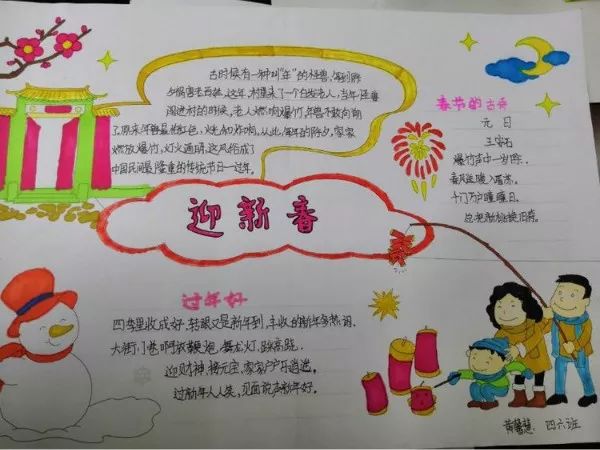 古时候有一种叫"年"的怪兽,每到除
夕祸害老百姓,这年,村里来了一个白发老人,当年怪兽
闯进村的时候,老人燃响爆竹,年兽不敢向前
了,原来年兽最怕红色,火光和炸响,从此,每年的除夕,家家
燃放爆竹,灯火通明,这风俗成了
中国民间最隆重的传统节日—过年。
春节的古诗
元日
王安石
爆竹声中一岁除,
春风送暖入屠苏。
千门万户曈曈日,
总把新桃换旧符。
迎新春
过年好
四季里收成好,转眼又是新年到,丰收的新年多热闹。
大街小巷啊放鞭炮,舞龙灯,踩高跷。
迎财神,接元宝,家家户户乐逍遥。
过新年人人笑,见面说声新年好。
黄馨慧 四六班